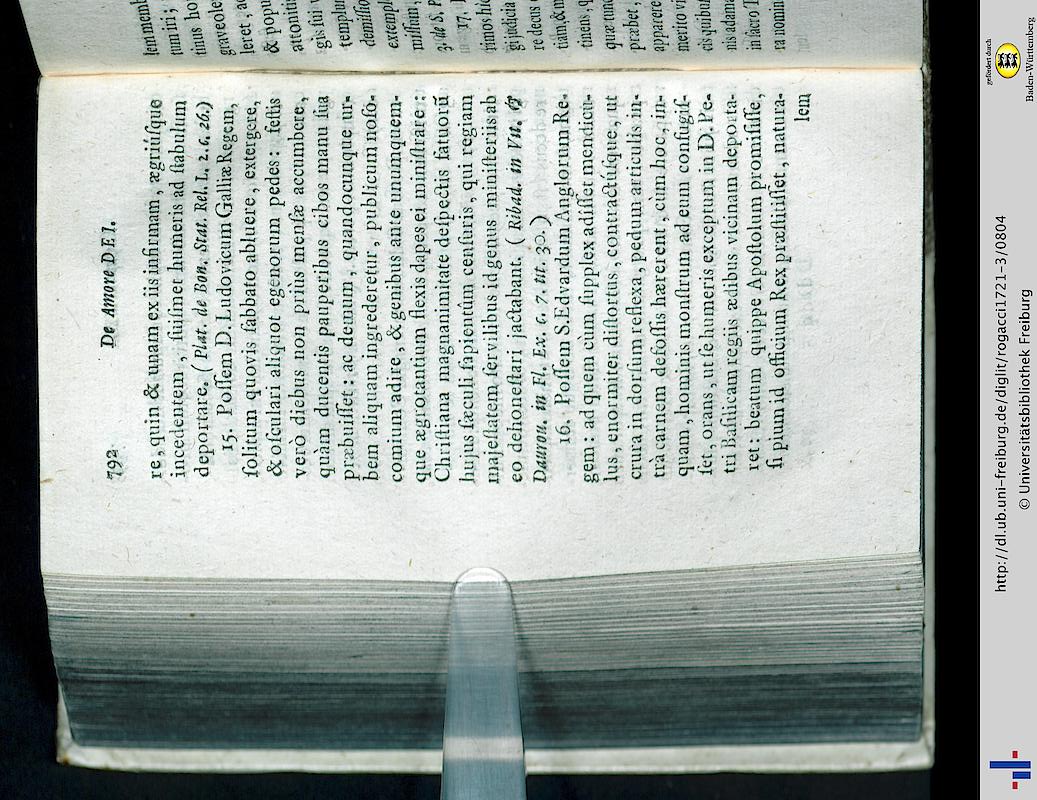 792 De Amore DEI.
re, quin & unam ex iis infirmam, ægriúſque
incedentem, ſuiſmet humeris ad ſtabulum
deportare. (Plat. de Bon. Stat. Rel. L. 2. c. 26.)
15. Poſſem D. Ludovicum Galliæ Regem,
ſolitum quovis ſabbato abluere, extergere,
& oſculari aliquot egenorum pedes: feſtis
verò diebus non priùs menſæ accumbere,
quàm ducentis pauperibus cibos manu ſua
præbuiſſet: ac demum, quandocunque ur-
bem aliquam ingrederetur, publicum noſo-
comium adire, & genibus ante unumquem-
que ægrotantium flexis dapes ei miniſtrare:
Chriſtiana magnanimitate deſpectis fatuorũ
hujus ſæculi ſapientũm cenſuris, qui regiam
majeſtatem ſervilibus id genus miniſteriis ab
eo dehoneſtari jactabant. (Ribad. in Vit. &
Dauron. in Fl. Ex. c. 7. tit. 30.)
16. Poſſem S. Edvardum Anglorum Re-
gem: ad quem cum ſupplex adiſſet mendicu-
lus, enormiter diſtortus, contractúſque, ut
crura in dorſum reflexa, pedum articulis in-
trà carnem defoſſis hærerent, cùm hoc, in-
quam, hominis monſtrum ad eum confugiſ-
ſet, orans, ut ſe humeris exceptum in D. Pe-
tri Baſilicam regiis ædibus vicinam deporta-
ret: beatum quippe Apoſtolum promiſiſſe,
ſi pium id officium Rex præſtitiſſet, natura-
lem
gefördert durch
Baden-Württemberg
http://dl.ub.uni-freiburg.de/diglit/rogacci1721-3/0804
© Universitätsbibliothek Freiburg